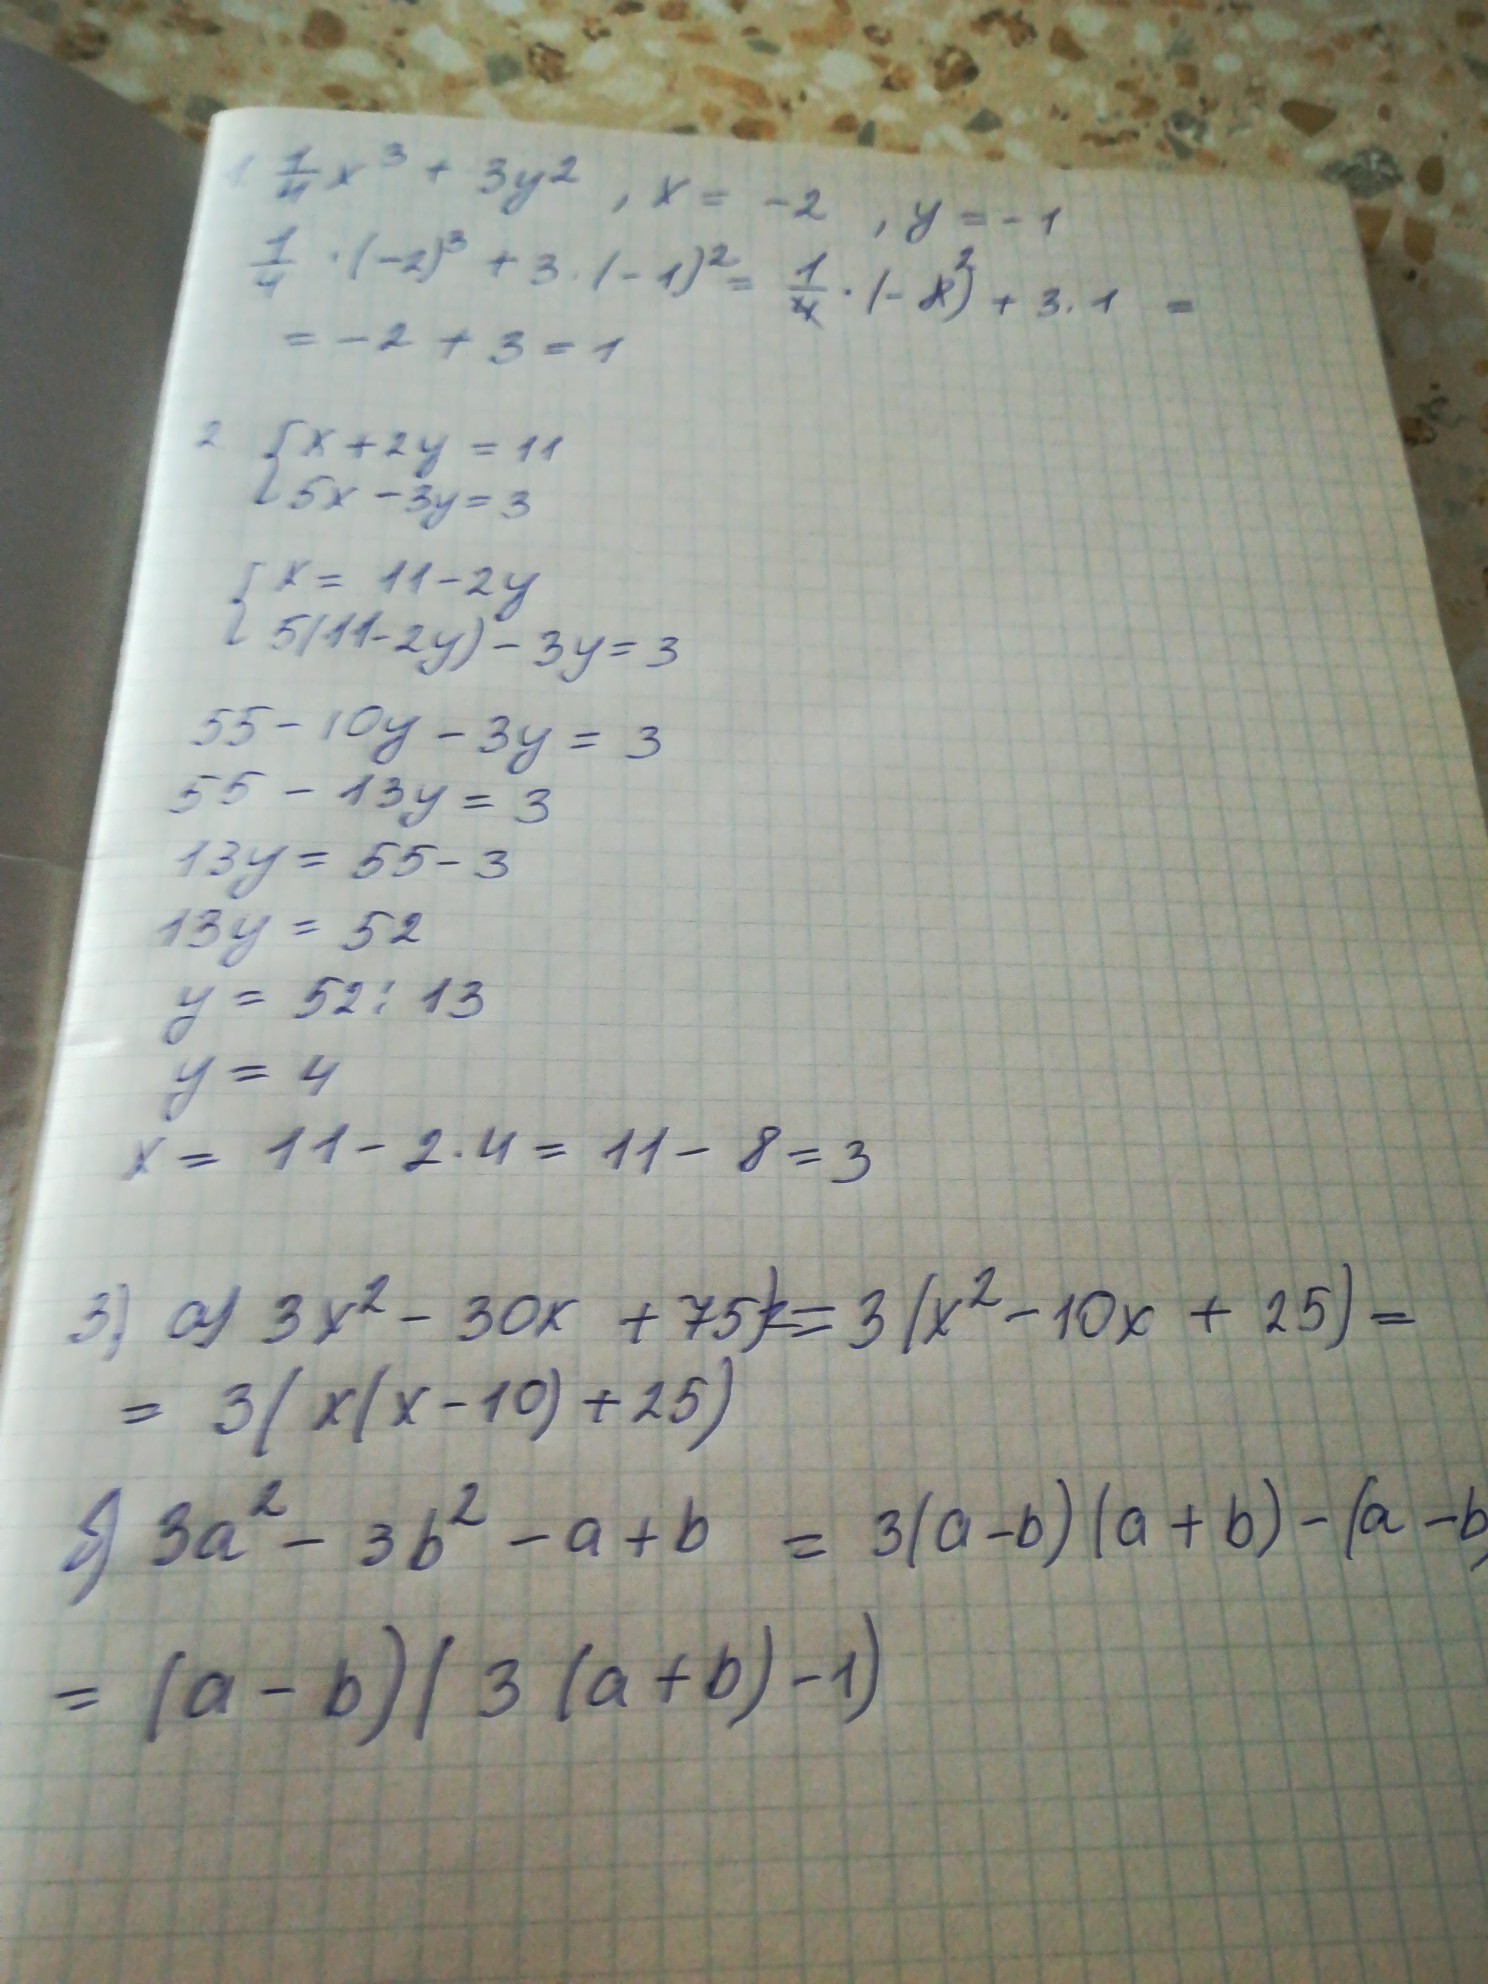 1. 1/4 x³ + 3y², x = -2, y = -1
1/4 · (-2)³ + 3 · (-1)² = 1/4 · (-8) ² + 3 · 1 =
= -2 + 3 = 1
2 { x + 2y = 11
5x - 3y = 3
{ x = 11 - 2y
5(11 - 2y) - 3y = 3
55 - 10y - 3y = 3
55 - 13y = 3
13y = 55 - 3
13y = 52
y = 52 : 13
y = 4
x = 11 - 2 · 4 = 11 - 8 = 3
3) а) 3x² - 30x + 75 = 3(x² - 10x + 25) =
= 3(x(x - 10) + 25)
б) 3a² - 3b² - a + b = 3(a - b)(a + b) - (a - b)
= (a - b)(3(a + b) - 1)